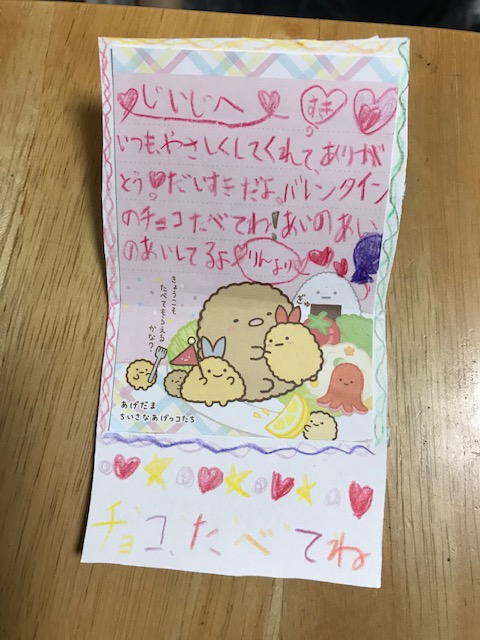 じいじへ
すき
いつも、やさしくしてくれて、ありが
とう♥だいすきだよ。バレンタイン
のチョコたべてね!あいのあい
のあいしてるよ
りんより
ぎゅ
きょうこそ
たべてもらえる
かな?
あげだま
ちいさなあげっコたち
チョコ、たべてね